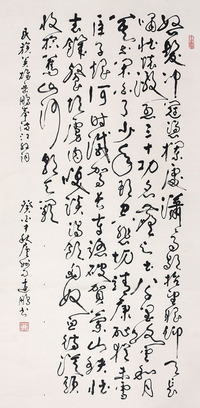 怒髮冲冠憑欄處瀟瀟雨歇抬望眼仰天長
嘯壯懷激烈三十功名塵与土八千里路雲和月
莫等閑白了少年頭空悲切靖康恥猶未雪
臣子恨何時滅駕長車踏破賀蘭山缺壯
志饑餐胡虜肉笑談渴飲匈奴血待從頭
收拾舊山河朝天闕
民族英雄岳鵬舉滿江紅詞
癸未中秋